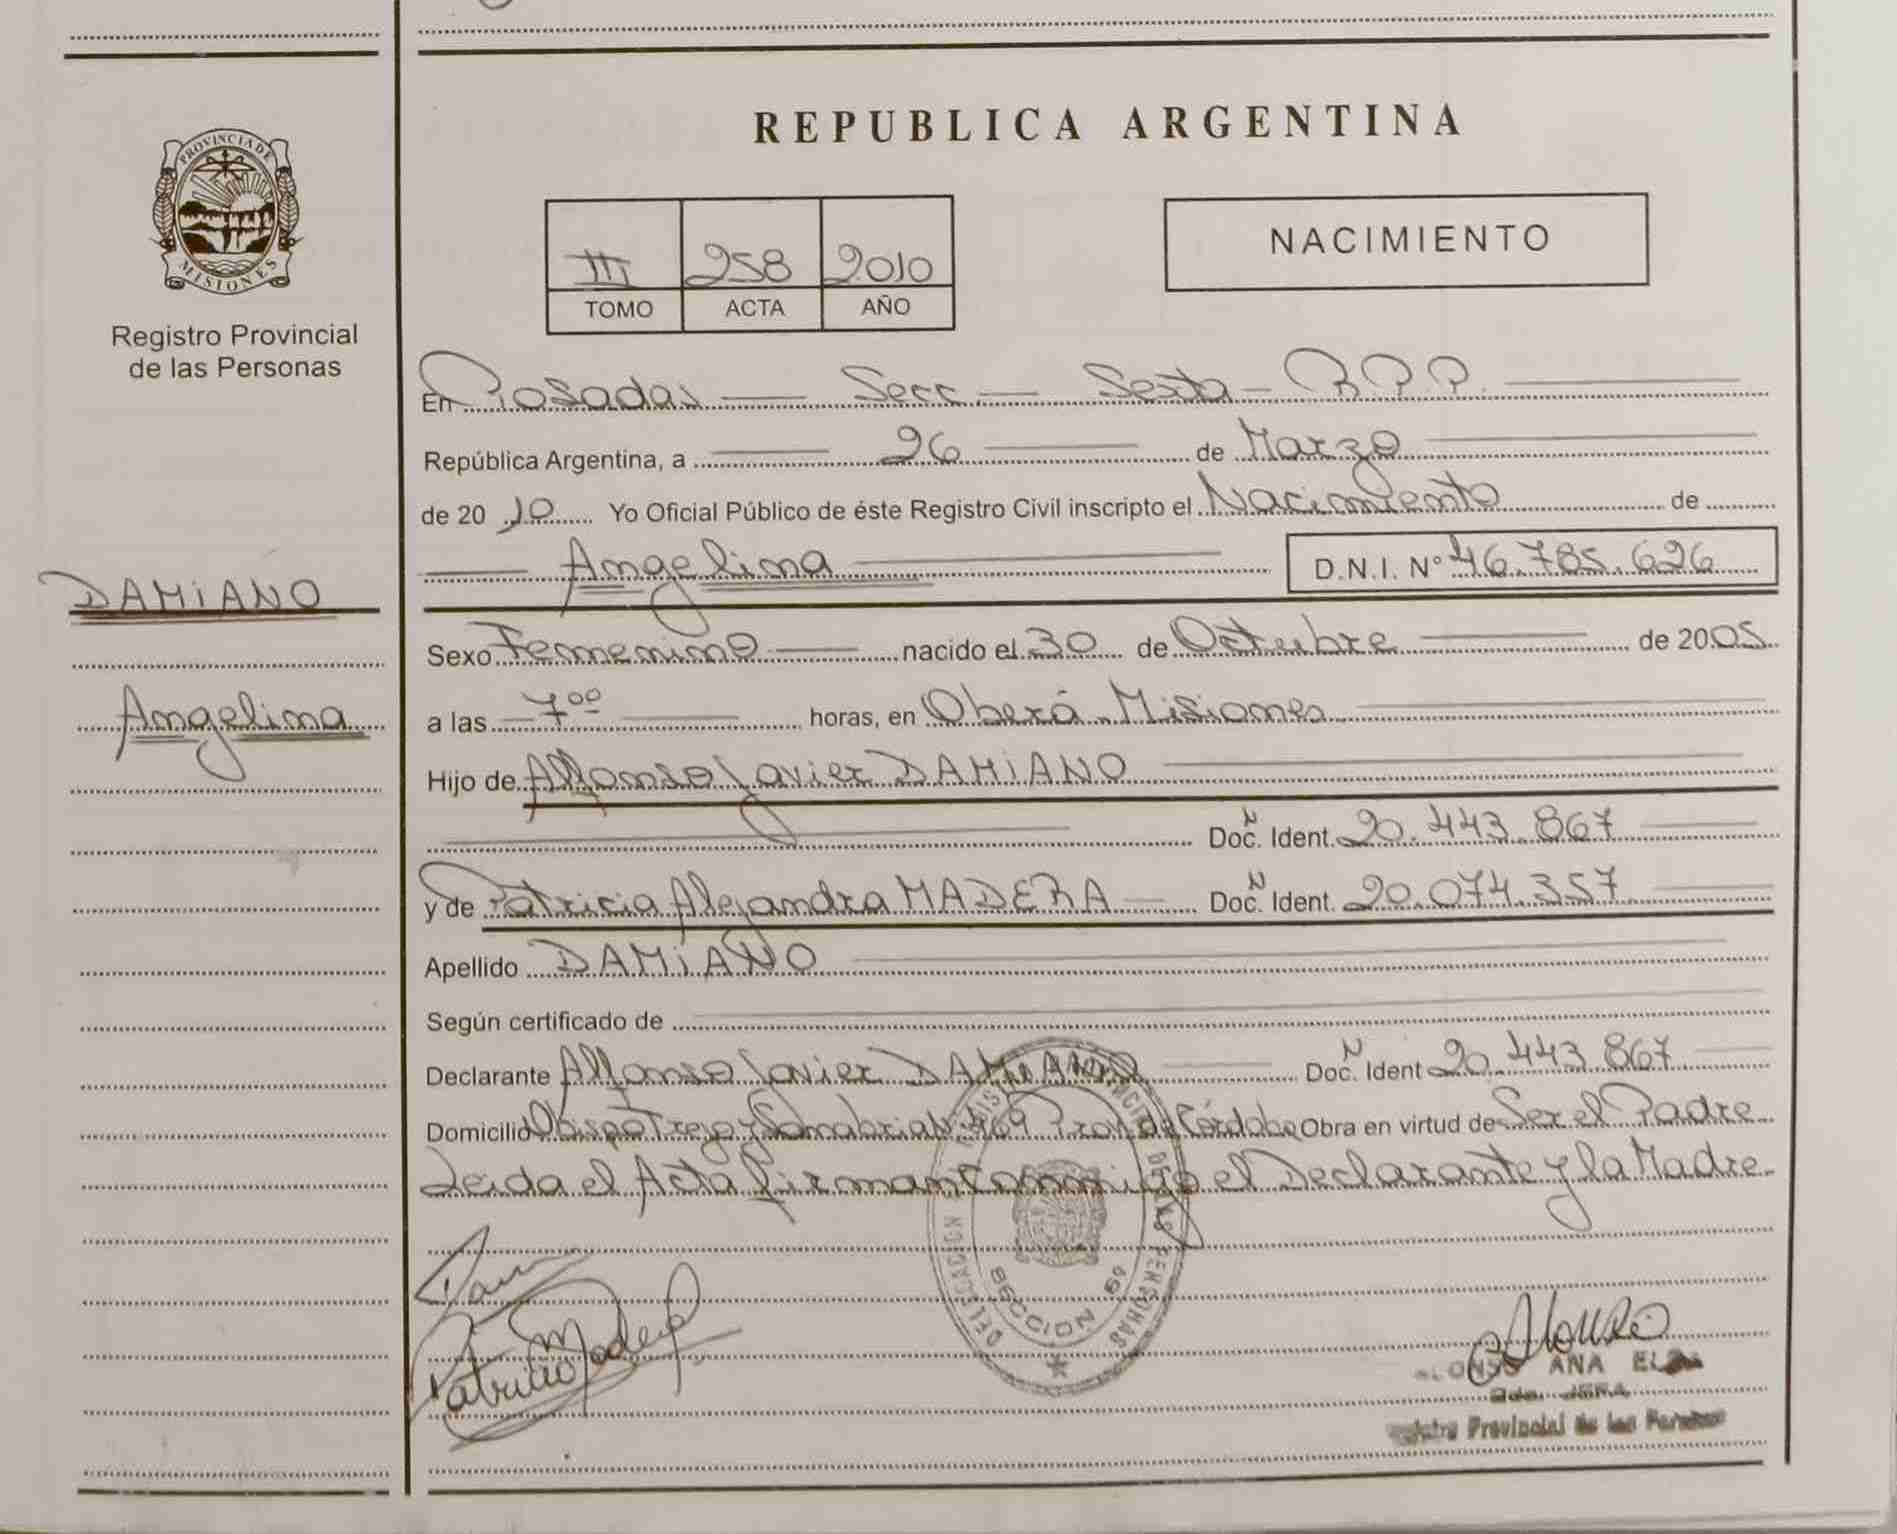 REPUBLICA ARGENTINA
PROVINCIA DE MISIONES
Registro Provincial
de las Personas
III 258 2010
TOMO ACTA AÑO
NACIMIENTO
En Posadas — Secc — Sexta — R.P.P.
República Argentina, a 26 de Marzo
de 2010 Yo Oficial Público de éste Registro Civil inscripto el Nacimiento de
Angelina D.N.I. Nº 46.785.626
DAMiANO
Angelina
Sexo Femenino nacido el 30 de Octubre de 2005
a las 7⁰⁰ horas, en Oberá Misiones
Hijo de Alfonso Javier DAMiANO
Doc. Ident. 20.443.867
y de Patricia Alejandra MADERA Doc. Ident. 20.074.357
Apellido DAMiANO
Según certificado de
Declarante Alfonso Javier DAMiANO Doc. Ident 20.443.867
Domicilio Obispo Trejo y Sanabria Nº 469 Prov. de Córdoba Obra en virtud de Ser el Padre
Leida el Acta firman Conmigo el Declarante y la Madre
DELEGACION DE LAS PERSONAS
SECCION 6ª
Patricia Madera
Alonso
ALONSO ANA ELSA
2da. JEFA
Registro Provincial de las Personas